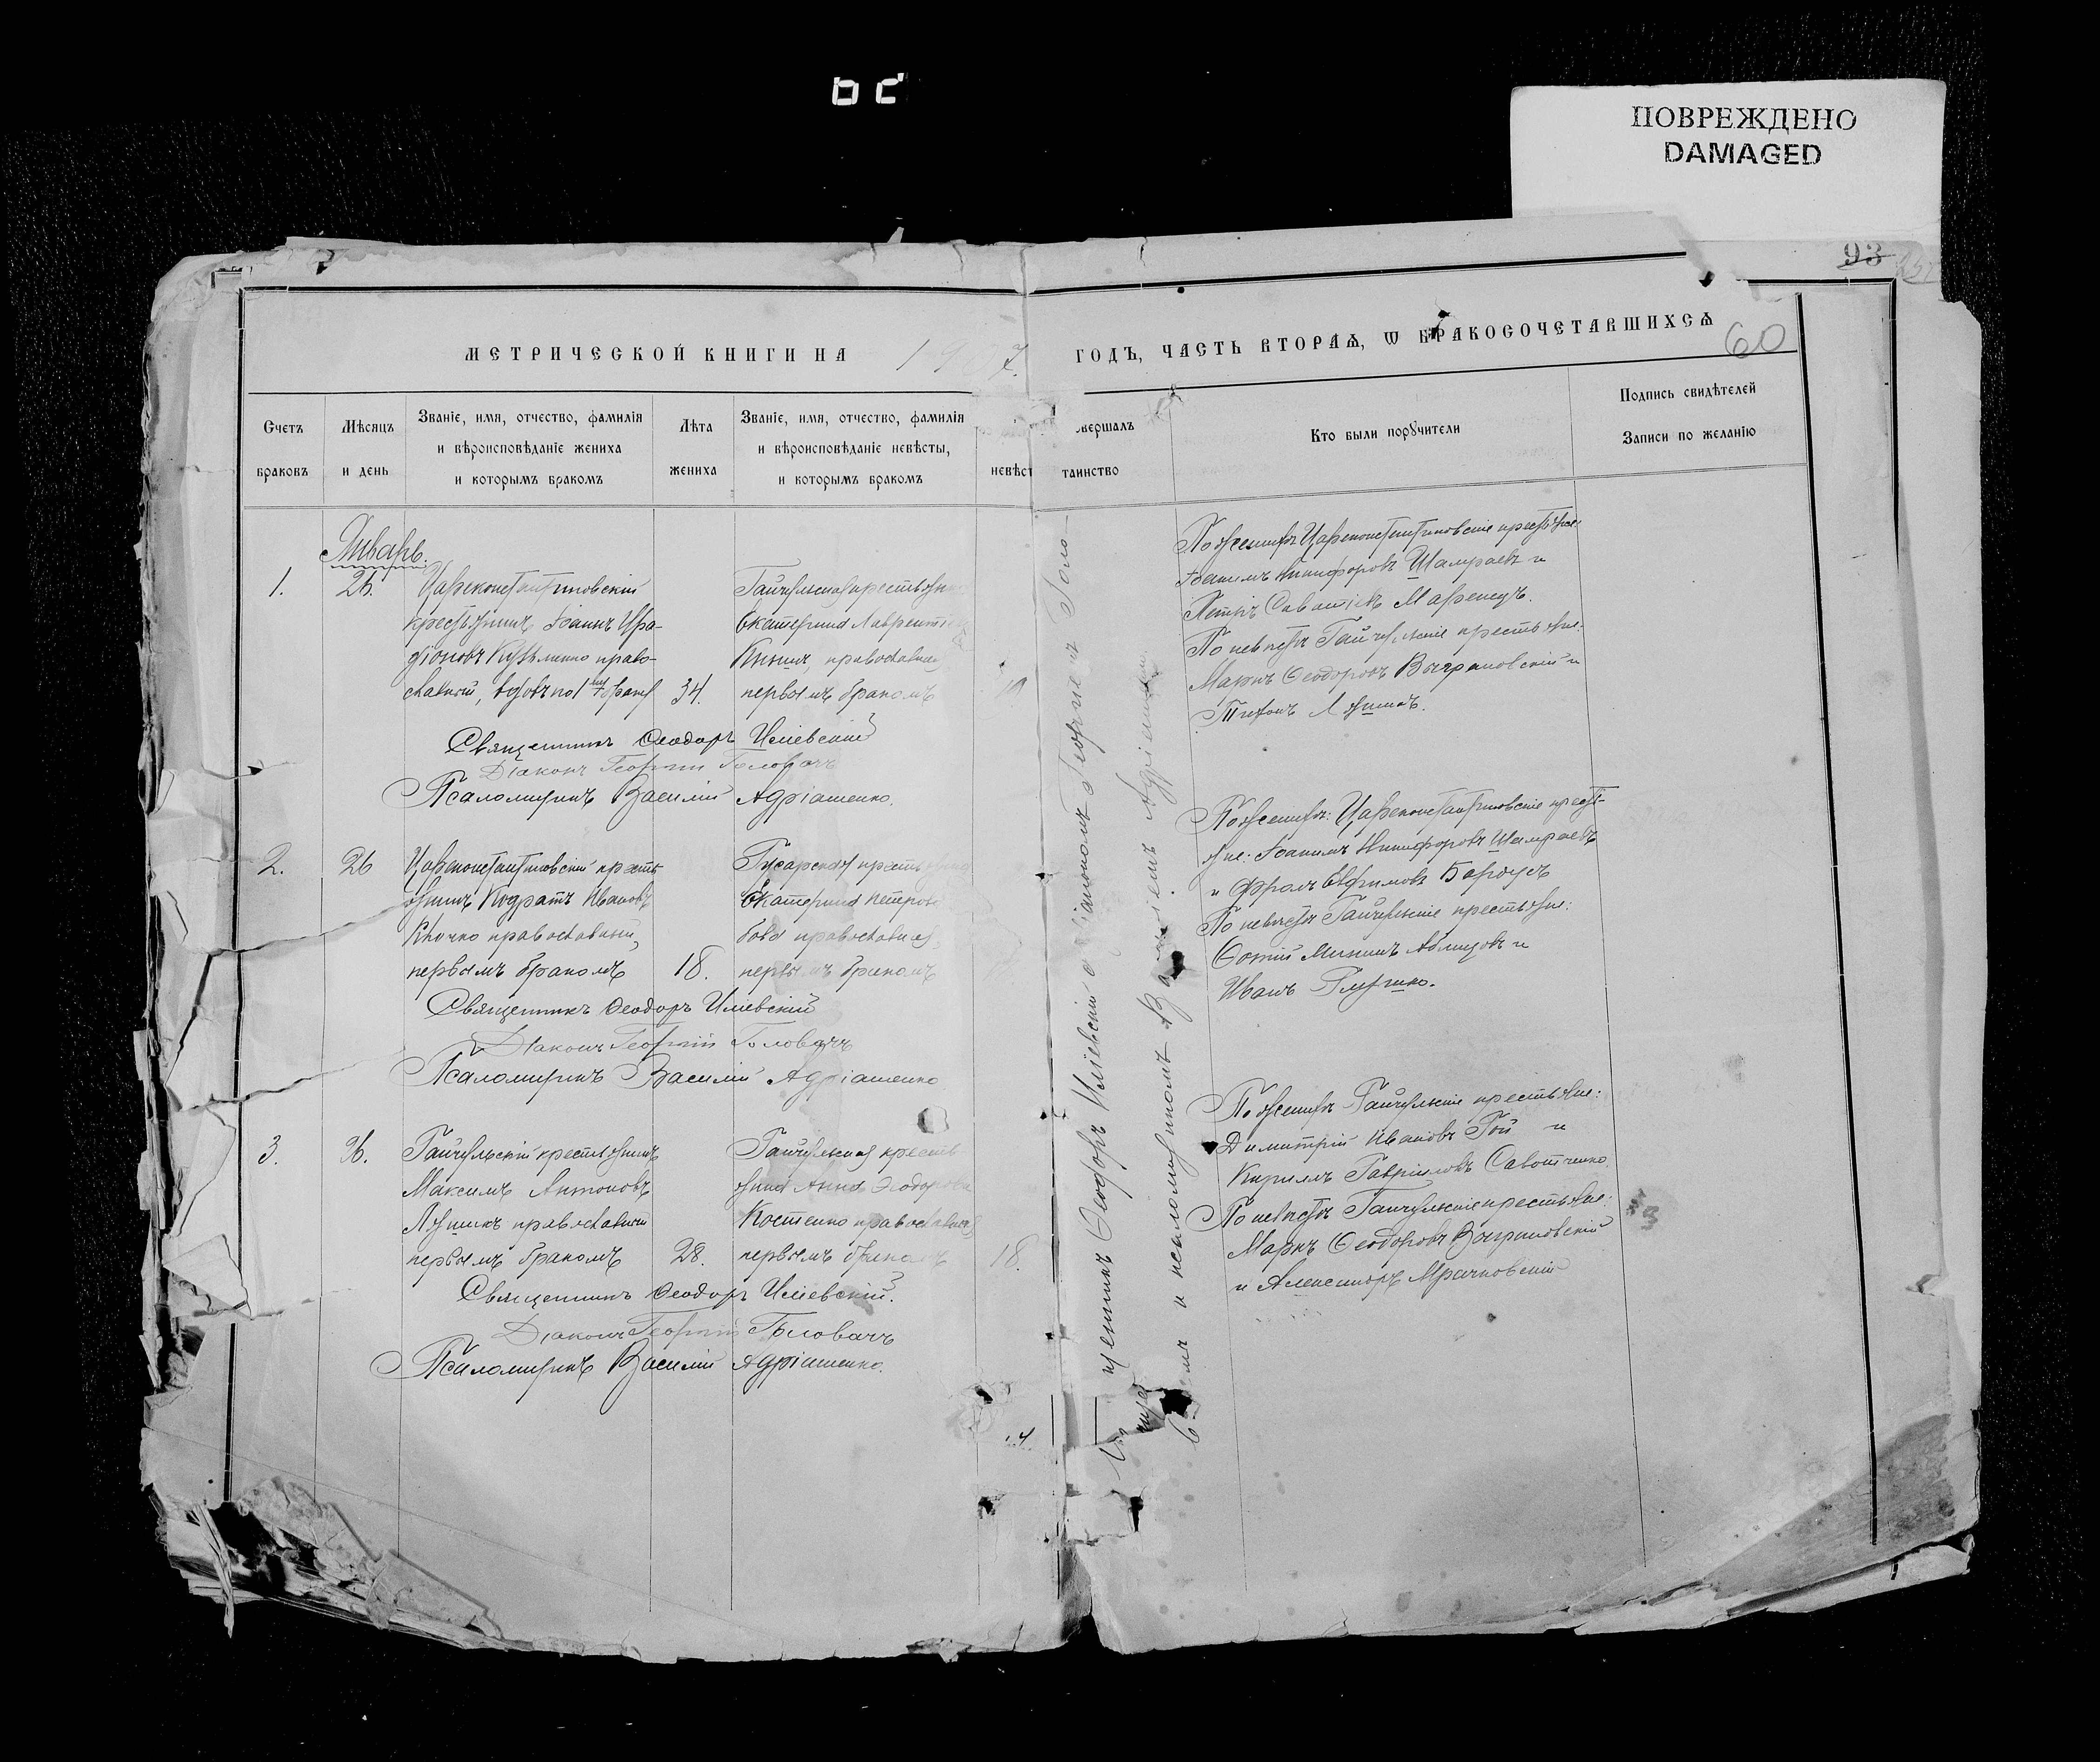 ПОВРЕЖДЕНО
DAMAGED
93
60
МЕТРИЧЕСКОЙ КНИГИ НА 1907.
ГОДЪ, ЧАСТЬ ВТОРАѦ, Ѡ БРАКОСОЧЕТАВШИХСѦ
Счетъ браковъ
Мѣсяцъ и день
Званіе, имя, отчество, фамилія и вѣроисповѣданіе жениха и которымъ бракомъ
Лѣта жениха
Званіе, имя, отчество, фамилія и вѣроисповѣданіе невѣсты, и которымъ бракомъ
невѣст
вершалъ таинство
Кто были порꙋчители
Подпись свидѣтелей Записи по желанію
Январь.
1.
26.
Цареконстантиновскій
крестьянинъ Іоаннъ Ира-
діоновъ Кузьменко право-
славный, вдовъ по 1 бракѣ
34.
Гайчульская крестьян
Екатерина Лаврентіе
Книшъ, православная
первымъ бракомъ
19
По женихѣ Цареконстантиновскіе крестьяне:
Іоакимъ Никифоровъ Шамраевъ и
Петръ Саватіевъ Маренецъ.
По невѣстѣ Гайчульскіе крестьяне:
Маркъ Ѳеодоровъ Выграновскій и
Тихонъ Ляшокъ.
Священникъ Ѳеодоръ Иліевскій
Діаконъ Георгій Головачъ
Псаломщикъ Василій Адріашенко.
2.
26
Цареконстантиновскій кресть-
янинъ Кодратъ Ивановъ
Клочко православный,
первымъ бракомъ
18.
Гусарская крестьянка
Екатерина Петрова
бова православная,
первымъ бракомъ
По женихѣ: Цареконстантиновскіе кресть-
яне: Іоакимъ Никифоровъ Шамраевъ
и Фролъ Евфимовъ
По невѣстѣ Гайчульскіе крестьяне:
Ѳотій и
Иванъ Глушко.
Священникъ Ѳеодоръ Иліевскій
Діаконъ Георгій Головачъ
Псаломщикъ Василій Адріашенко
3.
26.
Гайчульскій крестьянинъ
Максимъ Антоновъ
Ляшокъ православный
первымъ бракомъ
28.
Гайчульская кресть-
янка Анна Ѳеодорова
Костенко православная
первымъ бракомъ
18.
По женихѣ Гайчульскіе крестьяне:
Димитрій Ивановъ Гой и
Кириллъ Гавріиловъ Савотченко.
По невѣстѣ Гайчульскіе крестьяне:
Маркъ Ѳеодоровъ Выграновскій
и Александръ Мрачковскій
Священникъ Ѳеодоръ Иліевскій.
Діаконъ Георгій Головачъ
Псаломщикъ Василій Адріашенко.
щенникъ Ѳеодоръ Иліевскій съ діакономъ Георгіемъ Голо-
и псаломщикомъ Василіемъ Адріашенко